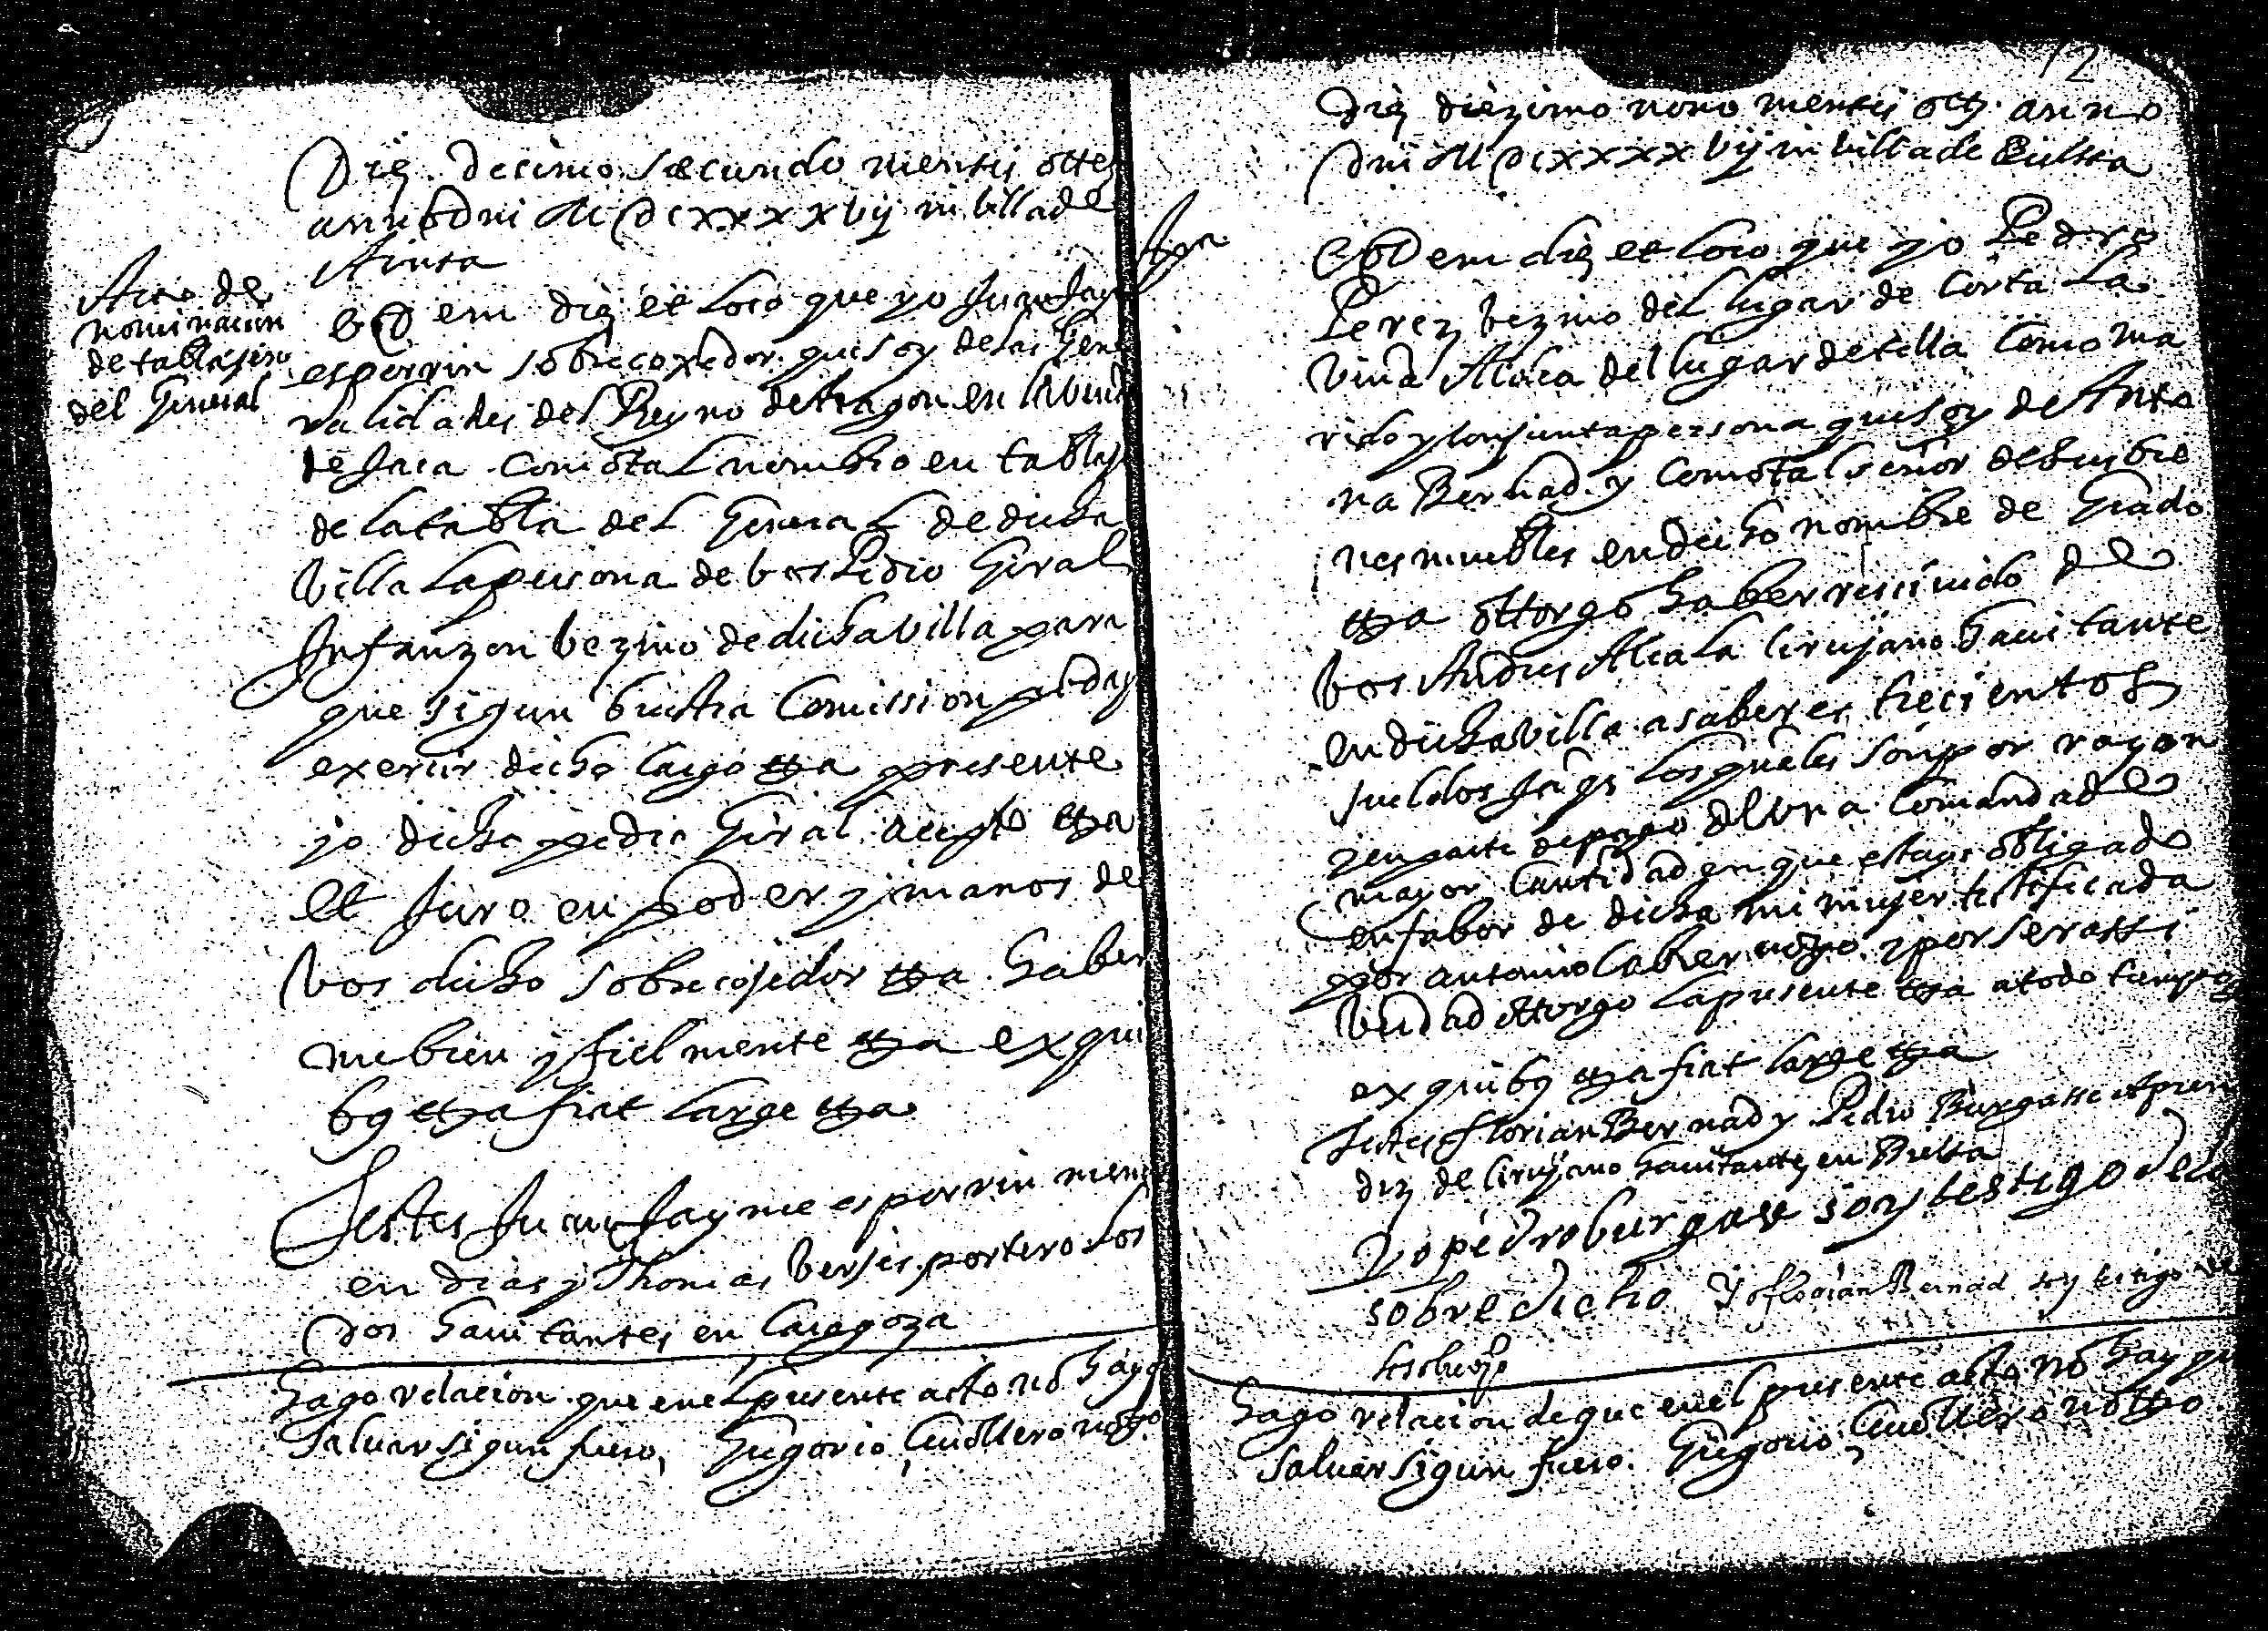 Die decimo secundo mensis octte
anno dni M dcxxxx vij in villa de
Ainsa
Acto de
nominacion
de tablajero
del General
Eod em die et loco que yo Juan Jay
esperrin sobrecoxedor que soy de las Gene
ralidades del Reyno de Aragon en la vered
de Jaca como tal nombro en tablaj
de la tabla del General de dicha
villa la persona de vos Pedro Giral
Infanzon vezino de dicha villa para
que sigun vuestra Comission poday
exercir dicho cargo ttra presente
yo dicho pedro Giral accepto ttra
et Juro en poder y manos de
vos dicho sobrecojedor ttra haber
me bien y fielmente ttra ex qui
bq ttra fiat large ttra
Testes Juan Jayme esperrin men
en dias y Thomas berges portero los
dos havitantes en Caragoza
Hago relacion que en el presente acto no hay q
saluar sigun fuero, Gregorio Cauollero notto
12
Die diezimo nono mensis octt. anno
dni M dcxxxx vij in villa de Bielsa
Apca
Eodem die et loco que yo Pedro
Perez vezino del lugar de Corta la
vina Aldea del lugar de tella como ma
rido y conjunta persona que soy de Anto
na Bernad y como tal señor de sus bie
nes muebles en dicho nombre de Grado
ttra ottorgo haber reciuido de
vos Andres Alcala cirujano havitante
en dicha villa a saber es trecientos
sueldos jaqs los quales son por razon
y en parte de pago de una comanda de
mayor cantidad en que estays obligado
en fabor de dicha mi mujer testificada
por antonio Cabrer notto. y por ser assi
verdad ottorgo la presente ttra a todo tiempo
ex quibq ttra fiat large ttra
Testes florian Bernad y Pedro Burgasse apren
diz de cirujano havitantes en Bielsa
Yo pedro burgase soy testigo de lo
sobredicho Yo florian Bernad soy testigo de
lo sobredo
Hago relacion de que en el presente acto no hay que
saluar sigun fuero. Gregorio Cauollero notto